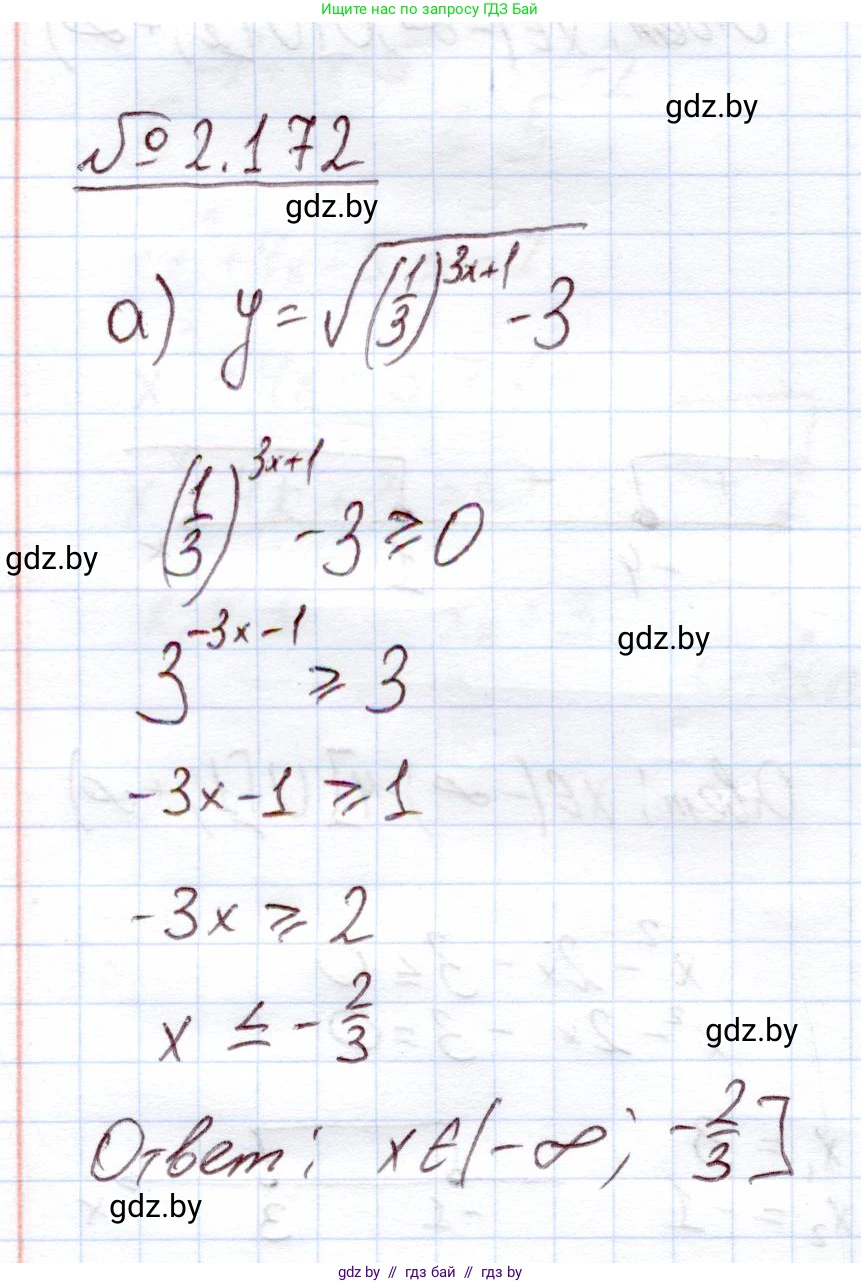 Ищите нас по запросу ГДЗ Бай
gdz.by
№ 2.172
gdz.by
а) y = √((1/3)^(3x+1) - 3)
(1/3)^(3x+1) - 3 ⩾ 0
gdz.by
3^(-3x-1) ⩾ 3
gdz.by
-3x-1 ⩾ 1
-3x ⩾ 2
x ≤ -2/3
gdz.by
Ответ: x∈(-∞; -2/3]
gdz.by
gdz by // гдз бай // гдз by